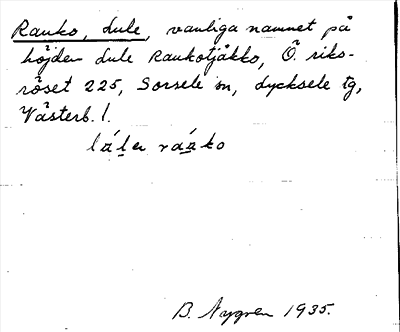 Rauko, Lule, vanliga namnet på
höjden Lule Raukotjåkko, Ö. riks-
röset 225, Sorsele sn, Lycksele tg,
Västerb. l.
B. Nygren 1935.